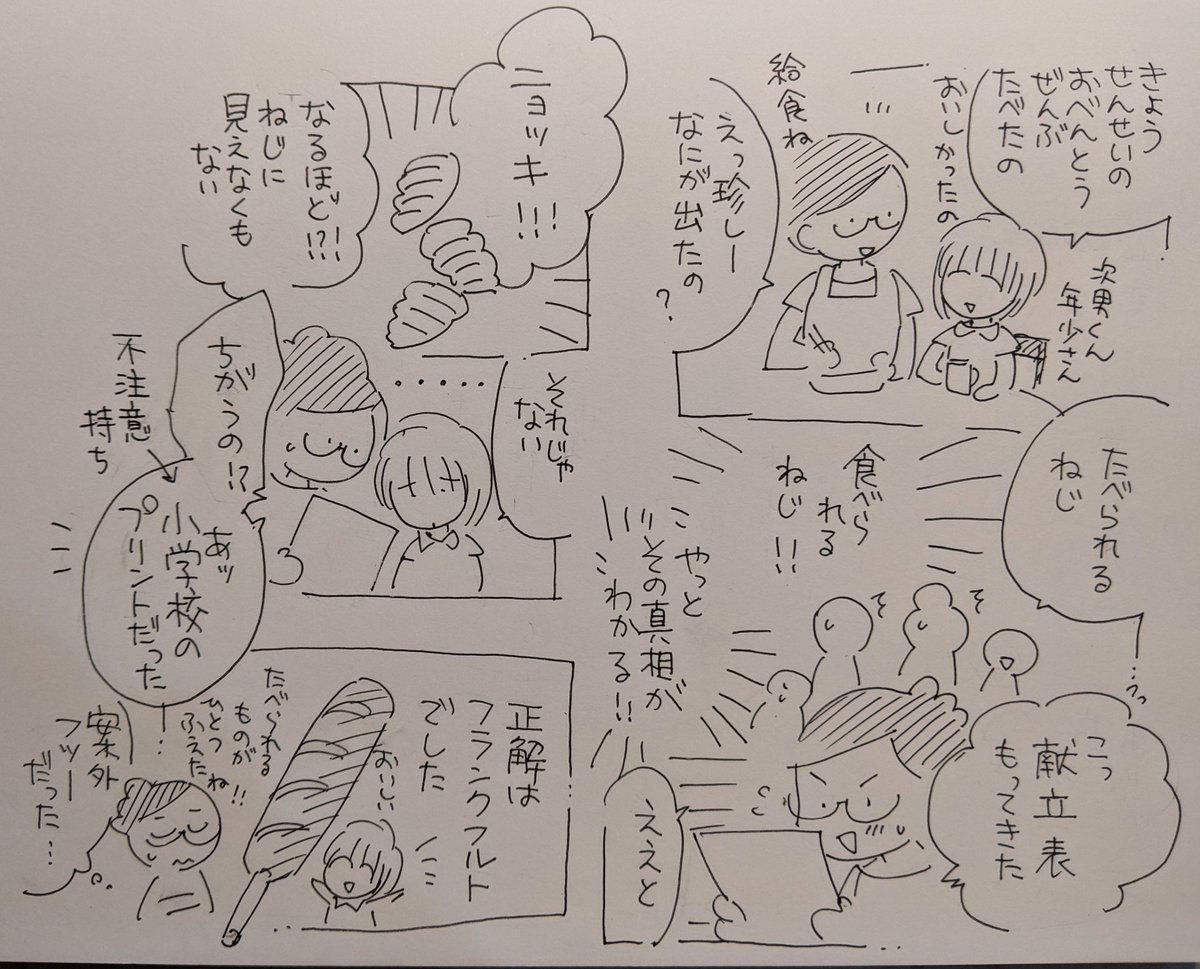 きょう
せんせいの
おべんとう
ぜんぶ
たべたの
おいしかったの
給食ね
えっ珍しー
なにが出たの
?
次男くん
年少さん
たべられる
ねじ
食べら
れる
ねじ!!
こっ
献立表
もってきた
やっと
その真相が
わかる!!
ええと
ニョッキ!!!
なるほど!?!
ねじに
見えなくも
ない
それじゃ
ない
......
ちがうの!?
不注意
持ち
あッ
小学校の
プリントだった
!
正解は
フランクフルト
でした
おいしい
たべられる
ものが
ひとつ
ふえたね!!
案外
フツー
だった…